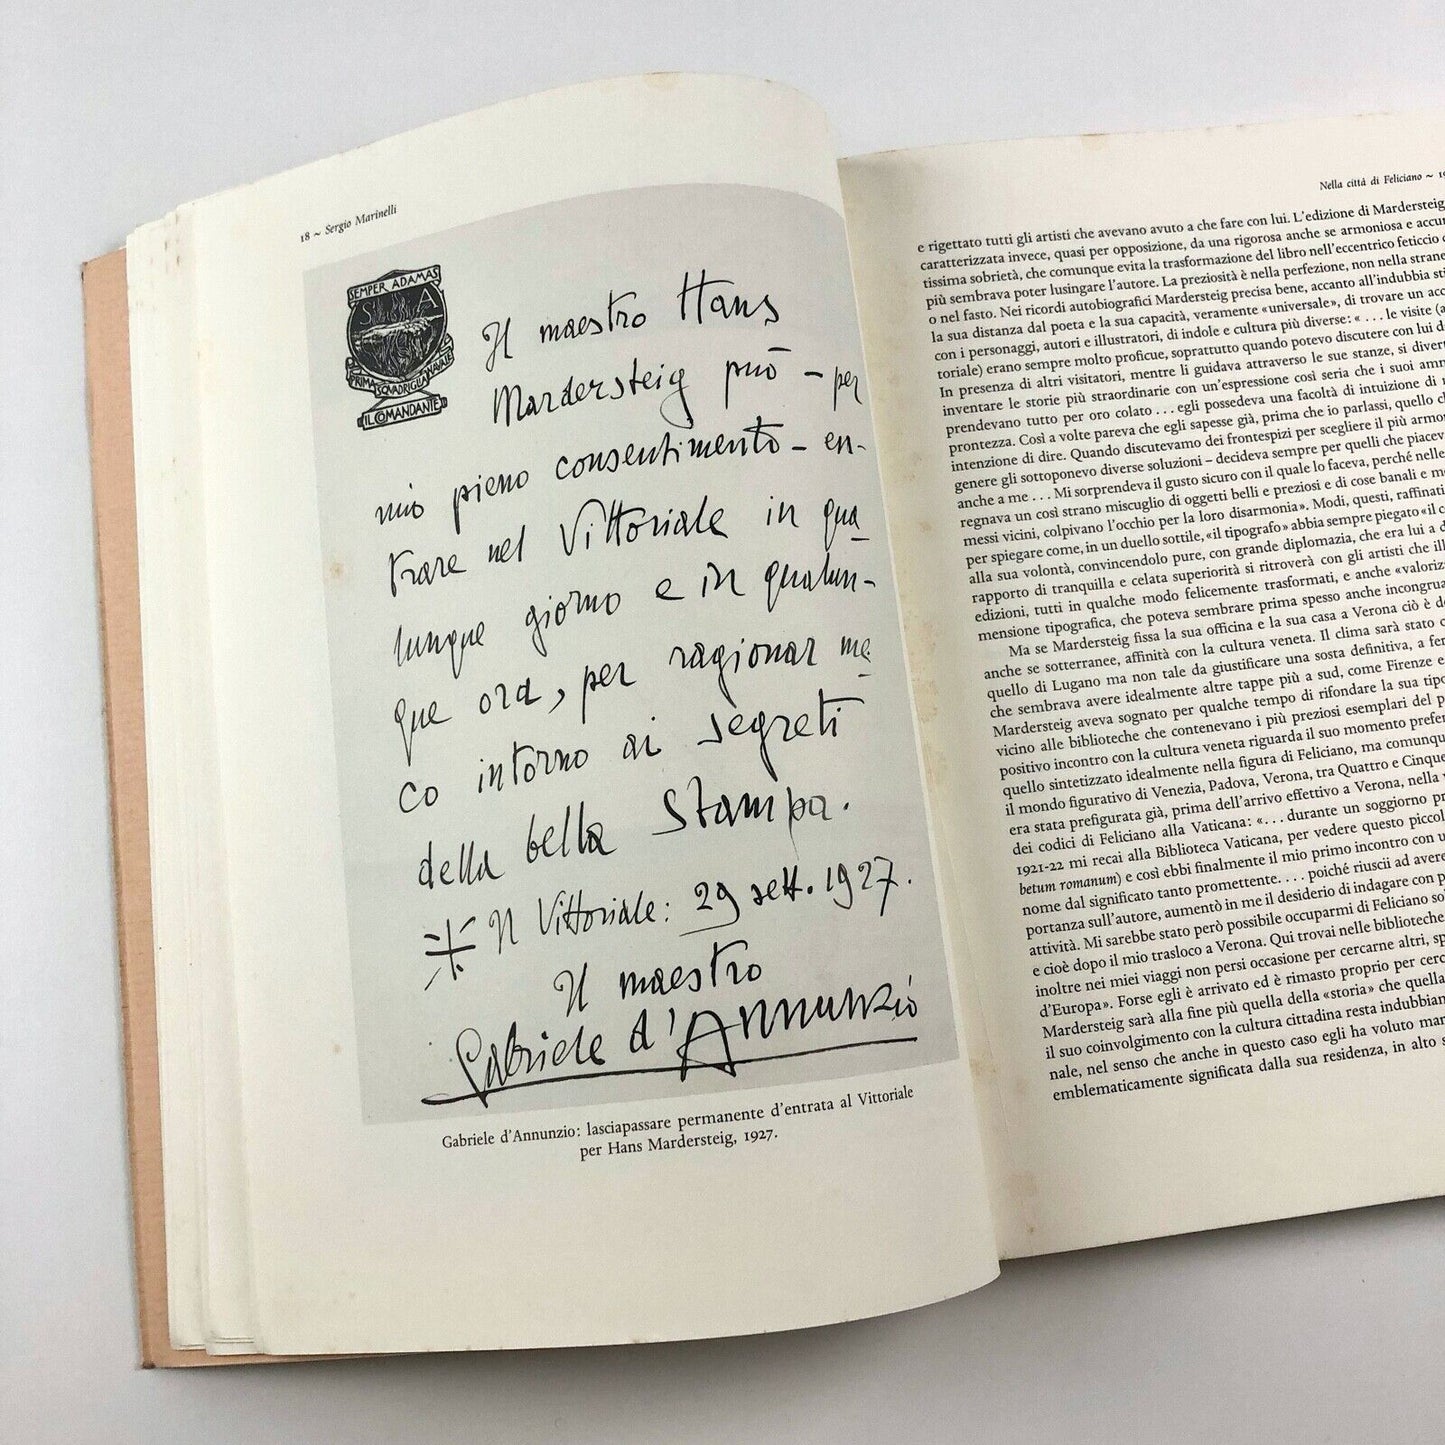 18 ~ Sergio Marinelli
SEMPER ADAMAS
S A
PRIMA SQUADRIGLIA NAVALE
IL COMANDANTE
Il maestro Hans
Mardersteig può – per
mio pieno consentimento – en-
trare nel Vittoriale in qua
lunque giorno e in qualun-
que ora, per ragionar me
co intorno ai segreti
della bella Stampa.
Il Vittoriale: 29 sett. 1927.
Il maestro
Gabriele d'Annunzio
Gabriele d'Annunzio: lasciapassare permanente d'entrata al Vittoriale
per Hans Mardersteig, 1927.
Nella città di Feliciano ~ 19
e rigettato tutti gli artisti che avevano avuto a che fare con lui. L'edizione di Mardersteig
caratterizzata invece, quasi per opposizione, da una rigorosa anche se armoniosa e accur
tissima sobrietà, che comunque evita la trasformazione del libro nell'eccentrico feticcio
più sembrava poter lusingare l'autore. La preziosità è nella perfezione, non nella strane
o nel fasto. Nei ricordi autobiografici Mardersteig precisa bene, accanto all'indubbia sti
la sua distanza dal poeta e la sua capacità, veramente «universale», di trovare un acc
con i personaggi, autori e illustratori, di indole e cultura più diverse: « . . . le visite (a
toriale) erano sempre molto proficue, soprattutto quando potevo discutere con lui d
In presenza di altri visitatori, mentre li guidava attraverso le sue stanze, si divert
inventare le storie più straordinarie con un'espressione così seria che i suoi amm
prendevano tutto per oro colato . . . egli possedeva una facoltà di intuizione di r
prontezza. Così a volte pareva che egli sapesse già, prima che io parlassi, quello ch
intenzione di dire. Quando discutevamo dei frontespizi per scegliere il più armon
genere gli sottoponevo diverse soluzioni – decideva sempre per quelli che piacev
anche a me . . . Mi sorprendeva il gusto sicuro con il quale lo faceva, perché nelle
regnava un così strano miscuglio di oggetti belli e preziosi e di cose banali e m
messi vicini, colpivano l'occhio per la loro disarmonia». Modi, questi, raffinati
per spiegare come, in un duello sottile, «il tipografo» abbia sempre piegato «il c
alla sua volontà, convincendolo pure, con grande diplomazia, che era lui a d
rapporto di tranquilla e celata superiorità si ritroverà con gli artisti che ill
edizioni, tutti in qualche modo felicemente trasformati, e anche «valoriz
mensione tipografica, che poteva sembrare prima spesso anche incongrua
Ma se Mardersteig fissa la sua officina e la sua casa a Verona ciò è d
anche se sotterranee, affinità con la cultura veneta. Il clima sarà stato c
quello di Lugano ma non tale da giustificare una sosta definitiva, a fer
che sembrava avere idealmente altre tappe più a sud, come Firenze e
Mardersteig aveva sognato per qualche tempo di rifondare la sua tipo
vicino alle biblioteche che contenevano i più preziosi esemplari del p
positivo incontro con la cultura veneta riguarda il suo momento prefer
quello sintetizzato idealmente nella figura di Feliciano, ma comunqu
il mondo figurativo di Venezia, Padova, Verona, tra Quattro e Cinque
era stata prefigurata già, prima dell'arrivo effettivo a Verona, nella v
dei codici di Feliciano alla Vaticana: «. . . durante un soggiorno pr
1921-22 mi recai alla Biblioteca Vaticana, per vedere questo piccol
betum romanum) e così ebbi finalmente il mio primo incontro con u
nome dal significato tanto promettente. . . . poiché riuscii ad avere
portanza sull'autore, aumentò in me il desiderio di indagare con p
attività. Mi sarebbe stato però possibile occuparmi di Feliciano so
e cioè dopo il mio trasloco a Verona. Qui trovai nelle biblioteche
inoltre nei miei viaggi non persi occasione per cercarne altri, sp
d'Europa». Forse egli è arrivato ed è rimasto proprio per cerc
Mardersteig sarà alla fine più quella della «storia» che quella
il suo coinvolgimento con la cultura cittadina resta indubbian
nale, nel senso che anche in questo caso egli ha voluto man
emblematicamente significata dalla sua residenza, in alto s